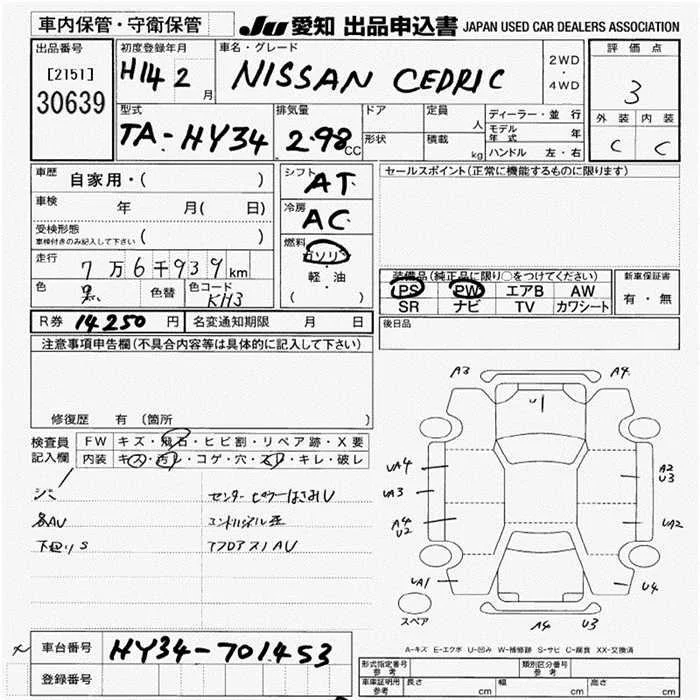 車内保管・守衛保管
JU 愛知 出品申込書 JAPAN USED CAR DEALERS ASSOCIATION
出品番号
[2151]
30639
初度登録年月
H14 2 月
車名・グレード
NISSAN CEDRIC
2WD
・
4WD
評価点
3
外装 内装
C C
型式
TA-HY34
排気量
2.98 CC
ドア
形状
定員 人
積載 kg
ディーラー・並行
モデル年式 年
ハンドル 左・右
車歴 自家用・( )
車検 年 月( 日)
受検形態
車検付きのみ記入して下さい ( )
走行 7万6千939km
色 黒 色替 色コード KH3
シフト AT
冷房 AC
燃料 ガソリン
・
軽・油
( )
セールスポイント(正常に機能するものに限ります)
装備品(純正品に限り○をつけてください)
PS PW エアB AW
SR ナビ TV カワシート
新車保証書
有・無
R券 14250 円 名変通知期限 月 日
後日品
注意事項申告欄(不具合内容等は具体的に記入して下さい)
修復歴 有 (箇所
検査員記入欄
FW キズ・飛石・ヒビ割・リペア跡・X要
内装 キズ・汚レ・コゲ・穴・スレ・キレ・破レ
各AU
下廻りS
センターピラーはさみU
A3 A4
U1
UA4
UA3
A4
U2
UA1
A2
U3
UA2
U4
A4 U3
スペア
A-キズ E-エクボ U-凹み W-補修跡 S-サビ C-腐食 XX-交換済
車台番号 HY34-701453
登録番号
型式指定番号
参考
類別区分番号
参考
車庫証明用
参考
長さ cm 幅 cm 高さ cm